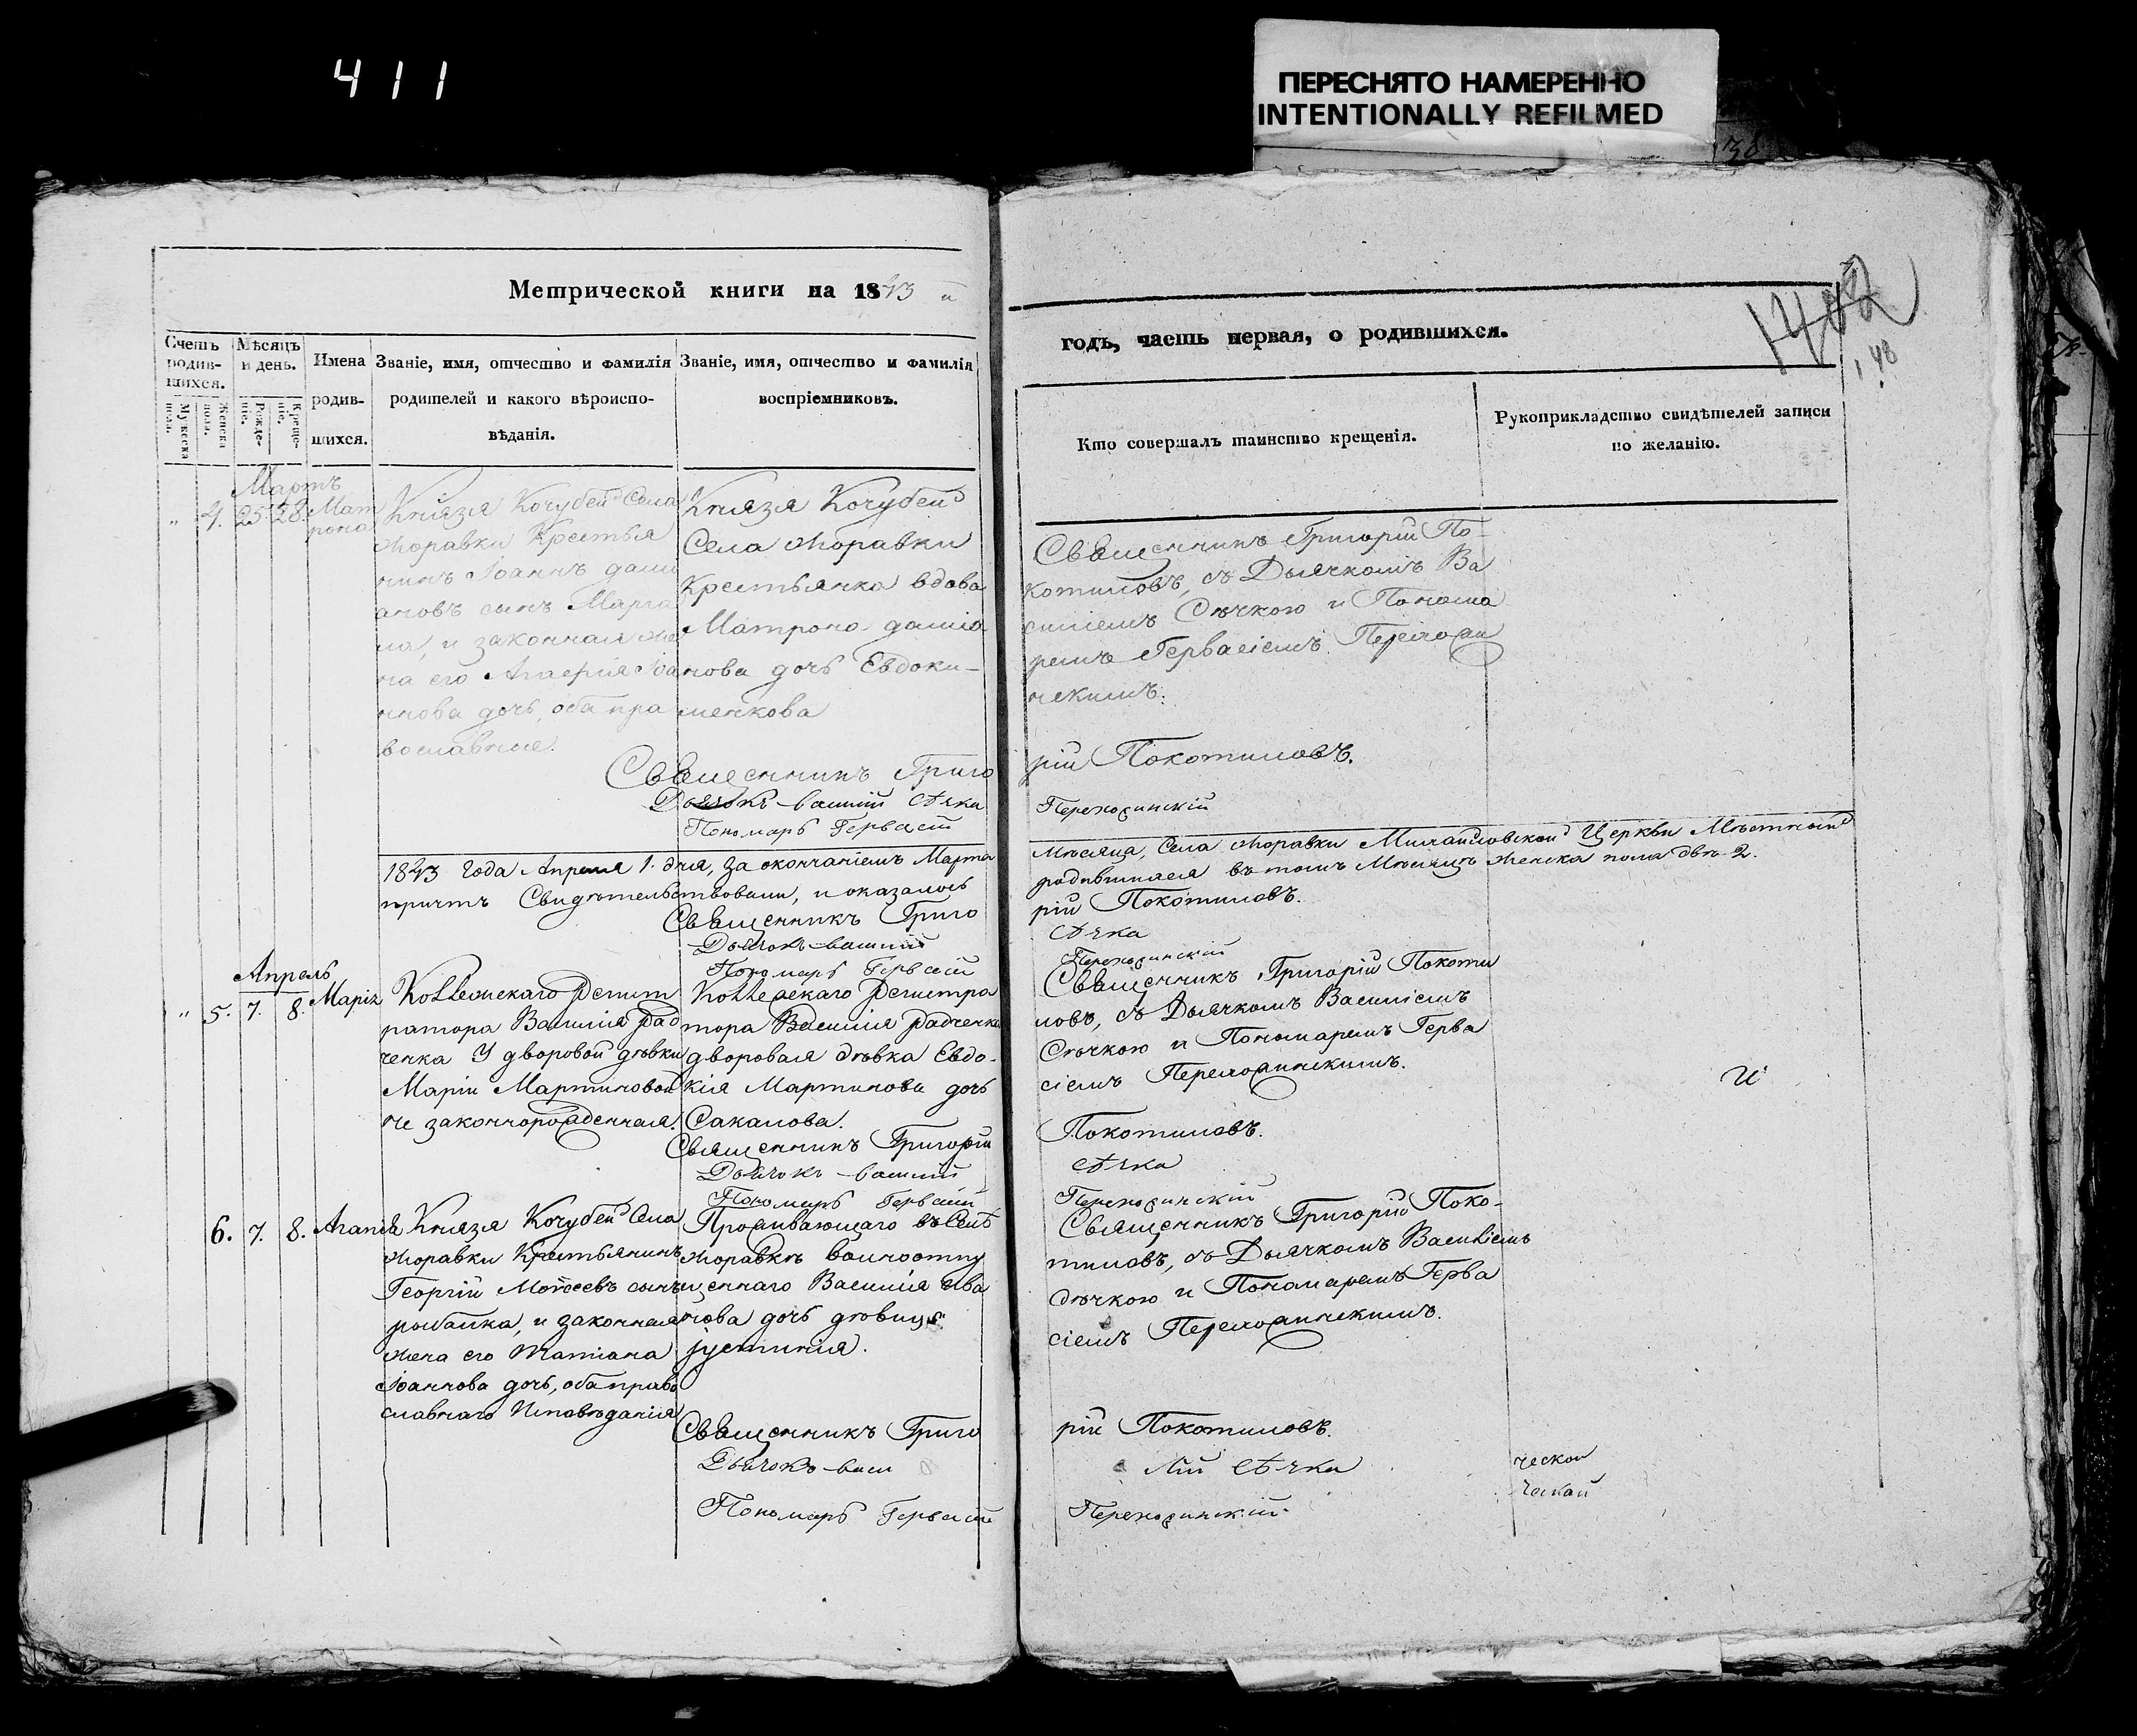 411
ПЕРЕСНЯТО НАМЕРЕННО
INTENTIONALLY REFILMED
Метрической книги на 1843 й
годъ, часть первая, о родившихся.
Счетъ родив-шихся.
Мужеска пола.
Женска пола.
Мѣсяцъ и день.
Рожде-нiе.
Креще-нiе.
Имена родив-шихся.
Званiе, имя, отчество и фамилiя родителей и какого вѣроиспо-вѣданiя.
Званiе, имя, отчество и фамилiя воспрiемниковъ.
Кто совершалъ таинство крещенiя.
Рукоприкладство свидѣтелей записи по желанiю.
Мартъ
„ 4. 25. 28. Мат
рона
Князя Кочубей Села
Жоравки Крестья
нинъ Іоаннъ
ановъ сынъ
и законная же
на его Агафія Іоа
ннова дочь, оба пра
вославные.
Князя Кочубей
Села Жоравки
Крестьянка вдова
Матрона даміа
нова дочь Евдоки-
менкова
Священникъ Григорій По-
котиловъ, съ Дьячкомъ Ва
силіемъ Сѣчкою и Понома
ремъ Гервасіемъ Пережоги
нскимъ.
Священникъ Григо
рій Покотиловъ.
Дьячокъ Василій Сѣчка
Пономарь Гервасій
1843 года Апреля 1. дня, за окончаніемъ Марта
Мѣсяца, Села Жоравки Михайловской Церкви Мѣстный
причтъ Свидѣтельствовали, и оказалось
родившихся въ томъ Мѣсяцѣ женска пола двѣ 2.
Священникъ Григо
рій Покотиловъ.
Дьячокъ Василій
Сѣчка
Пономарь Гервасій
Апрель
„ 5. 7. 8. Марія
Коллежскаго Регист
ратора Василія Рад
ченка У дворовой дѣвки
Маріи Мартиновой
не законнорожденная.
Коллежскаго Регистра
тора Василія Радченка
дворовая дѣвка Евдо-
кія Мартинова дочь
Сакалова.
Священникъ Григорій Покоти
ловъ, съ Дьячкомъ Василіемъ
Сѣчкою и Пономаремъ Герва
сіемъ Пережогинскимъ.
Священникъ Григорій
Покотиловъ.
Дьячокъ Василій
Сѣчка
Пономарь Гервасій
6. 7. 8.
Князя Кочубей Села
Жоравки Крестьянинъ
Георгій Моѵсеевъ сынъ
рыбалка, и законная
жена его Татіана
Іоаннова дочь, оба право
славнаго Исповѣданія
Проживающаго въ Селѣ
Жоравкѣ
Василія Ива
нова дочь дѣвица
Іустинія.
Священникъ Григорій Поко-
тиловъ, съ Дьячкомъ Василіемъ
Сѣчкою и Пономаремъ Герва
сіемъ Пережогинскимъ.
Священникъ Григо
рій Покотиловъ.
Дьячокъ Васи
лій Сѣчка
Пономарь Гервасій